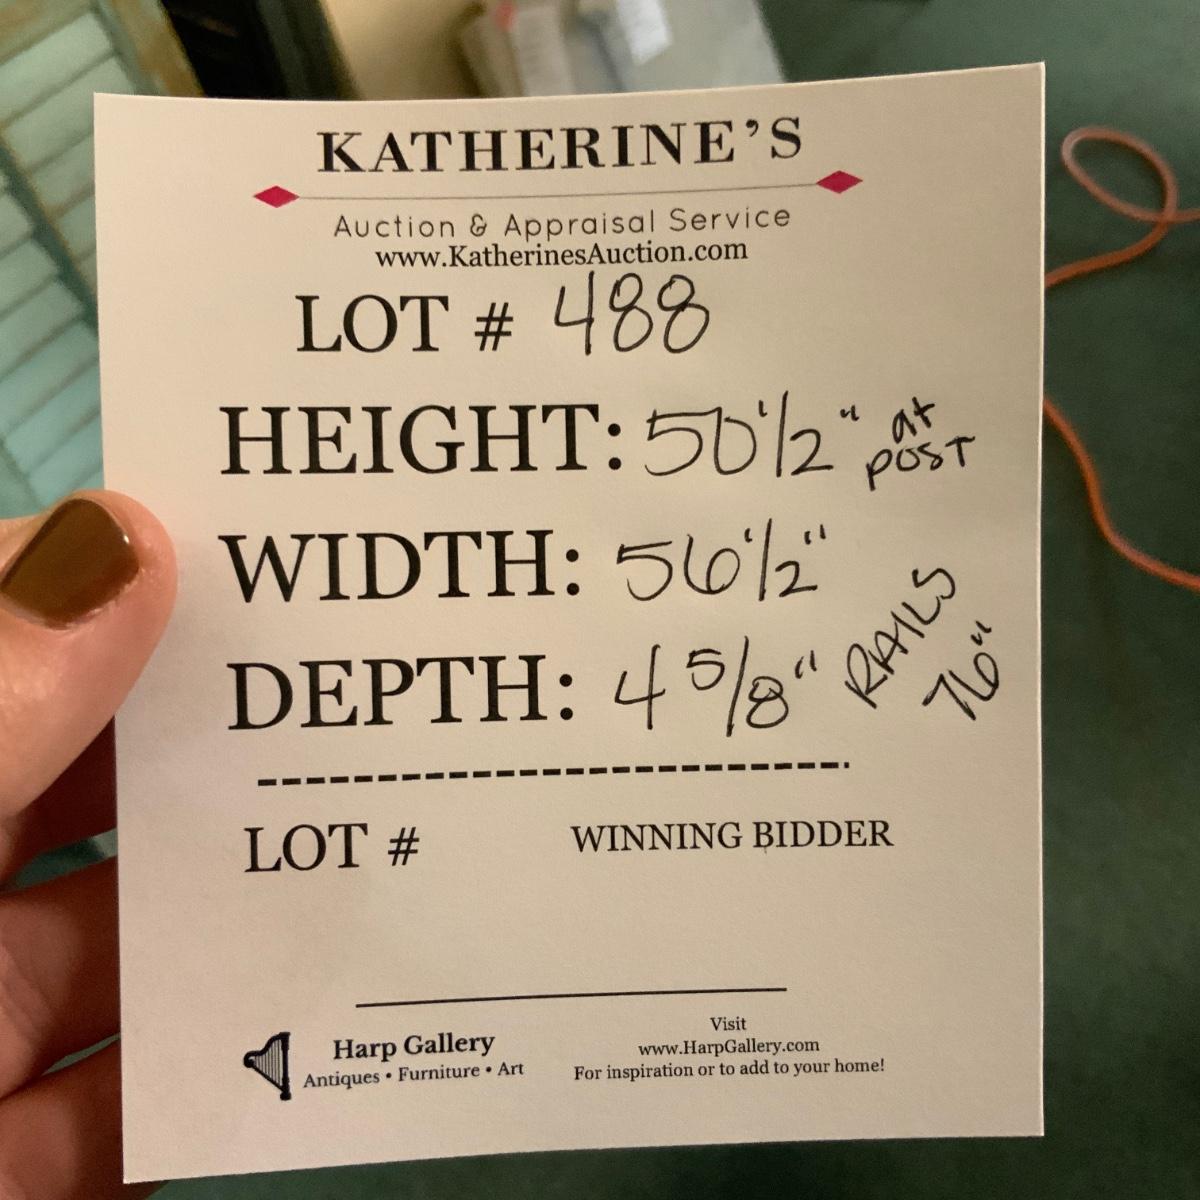 KATHERINE'S
Auction & Appraisal Service
www.KatherinesAuction.com
LOT # 488
HEIGHT: 50 1/2" at POST
WIDTH: 56 1/2"
DEPTH: 4 5/8" RAILS 76"
LOT # WINNING BIDDER
Harp Gallery
Antiques • Furniture • Art
Visit
www.HarpGallery.com
For inspiration or to add to your home!